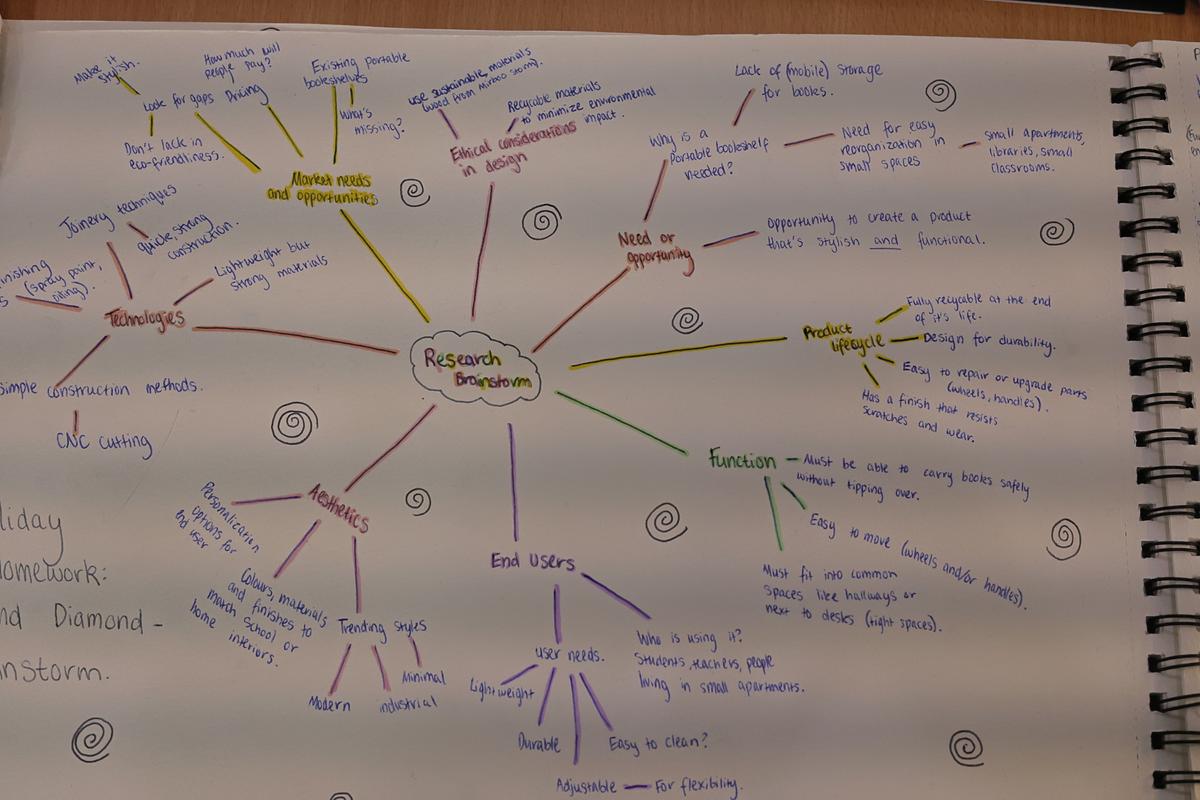 Research
Brainstorm
Market needs
and opportunities
Look for gaps
Make it
stylish.
Don't lack in
eco-friendliness.
Pricing
How much will
people pay?
Existing portable
bookshelves
What's
missing?
Ethical considerations
in design
use sustainable, materials
(wood from Mirboo storm).
Recycable materials
to minimize environmental
impact.
Need or
opportunity
Why is a
portable bookshelf
needed?
Lack of (mobile) storage
for books.
Need for easy
reorganization in
small spaces
small apartments,
libraries, small
classrooms.
Opportunity to create a product
that's stylish and functional.
Product
lifecycle
Fully recycable at the end
of it's life.
Design for durability.
Easy to repair or upgrade parts
(wheels, handles).
Has a finish that resists
scratches and wear.
Function
Must be able to carry books safely
without tipping over.
Easy to move (wheels and/or handles).
Must fit into common
spaces like hallways or
next to desks (tight spaces).
End Users
Who is using it?
Students, teachers, people
living in small apartments.
user needs.
Lightweight
Durable
Adjustable
For flexibility.
Easy to clean?
Aesthetics
Personalication
options for
end user
Colours, materials
and finishes to
match school or
home interiors.
Trending styles
Modern
industrial
Minimal
Technologies
Joinery techniques
quick, strong
construction.
Lightweight but
strong materials
inishing
(spray paint,
oiling).
simple construction methods.
CNC cutting
liday
Homework:
nd Diamond -
instorm.